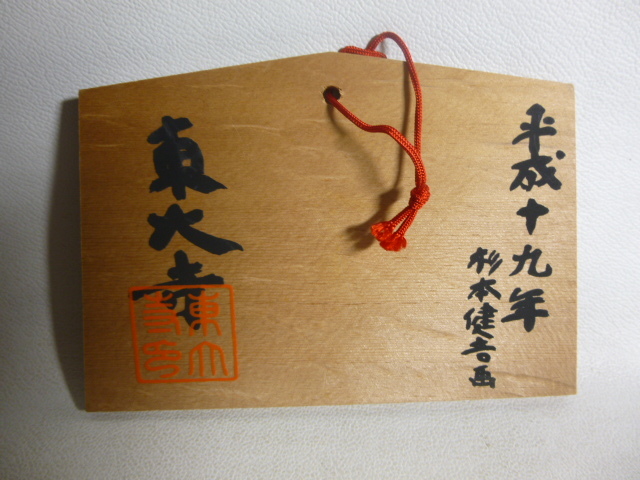 平成十九年
杉本健吉画
東大寺
東大寺印